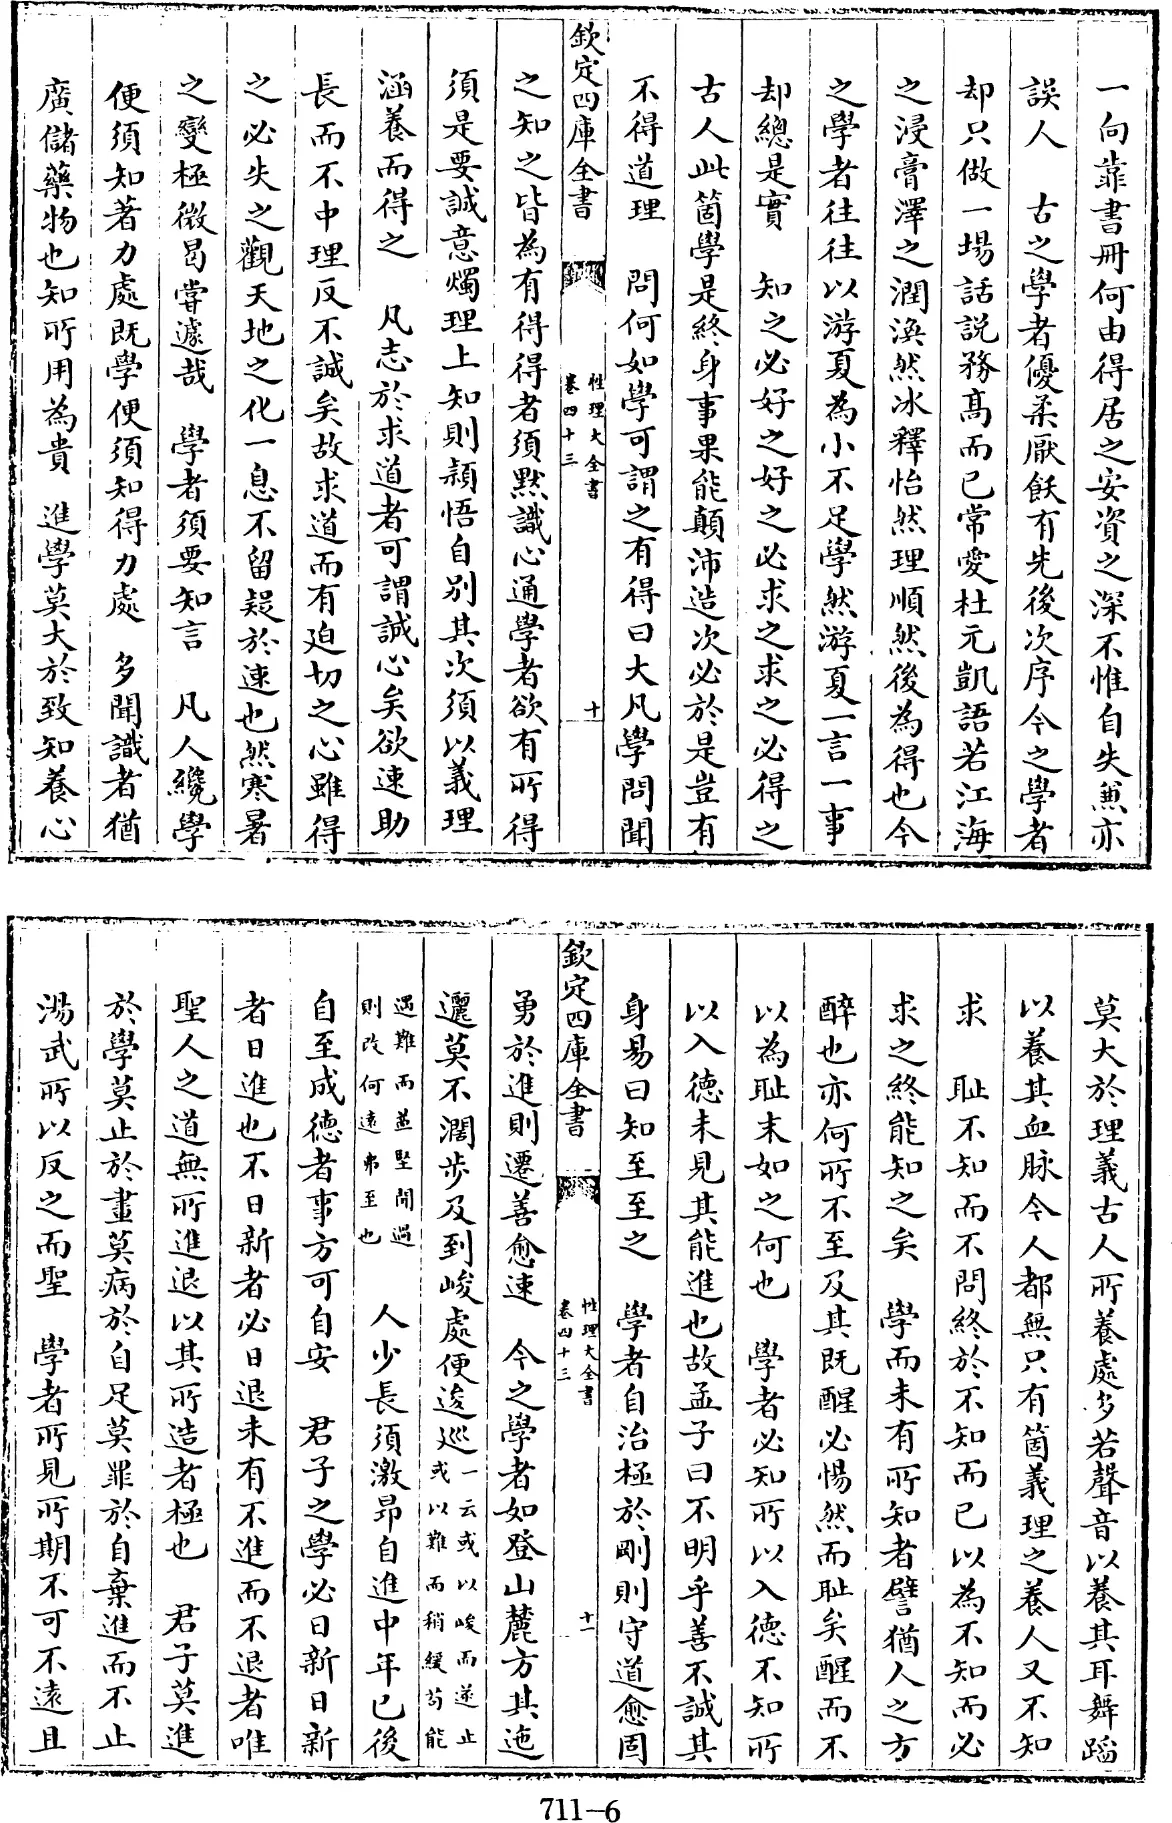 一向靠書冊何由得居之安資之深不惟自失兼亦
誤人　古之學者優柔厭飫有先後次序今之學者
却只做一場話説務髙而已常愛杜元凱語若江海
之浸膏澤之潤渙然冰釋怡然理順然後為得也今
之學者往往以游夏為小不足學然游夏一言一事
却總是實　知之必好之好之必求之求之必得之
古人此箇學是終身事果能顛沛造次必於是豈有
不得道理　問何如學可謂之有得曰大凡學問聞
欽定四庫全書
性理大全書
卷四十三
十
之知之皆為有得得者須黙識心通學者欲有所得
須是要誠意燭理上知則穎悟自別其次須以義理
涵養而得之　凡志於求道者可謂誠心矣欲速助
長而不中理反不誠矣故求道而有迫切之心雖得
之必失之觀天地之化一息不留疑於速也然寒暑
之變極微曷嘗遽哉　學者須要知言　凡人纔學
便須知著力處既學便須知得力處　多聞識者猶
廣儲藥物也知所用為貴　進學莫大於致知養心
莫大於理義古人所養處多若聲音以養其耳舞蹈
以養其血脉今人都無只有箇義理之養人又不知
求　耻不知而不問終於不知而已以為不知而必
求之終能知之矣　學而未有所知者譬猶人之方
醉也亦何所不至及其既醒必惕然而耻矣醒而不
以為耻末如之何也　學者必知所以入德不知所
以入德未見其能進也故孟子曰不明乎善不誠其
身易曰知至至之　學者自治極於剛則守道愈固
欽定四庫全書
性理大全書
卷四十三
十一
勇於進則遷善愈速　今之學者如登山麓方其迤
邐莫不濶步及到峻處便逡巡一云或以峻而遂止
或以難而稍緩苟能
遇難而益堅聞過
則改何遠弗至也　人少長須激昂自進中年已後
自至成德者事方可自安　君子之學必日新日新
者日進也不日新者必日退未有不進而不退者唯
聖人之道無所進退以其所造者極也　君子莫進
於學莫止於畫莫病於自足莫罪於自棄進而不止
湯武所以反之而聖　學者所見所期不可不遠且
711-6